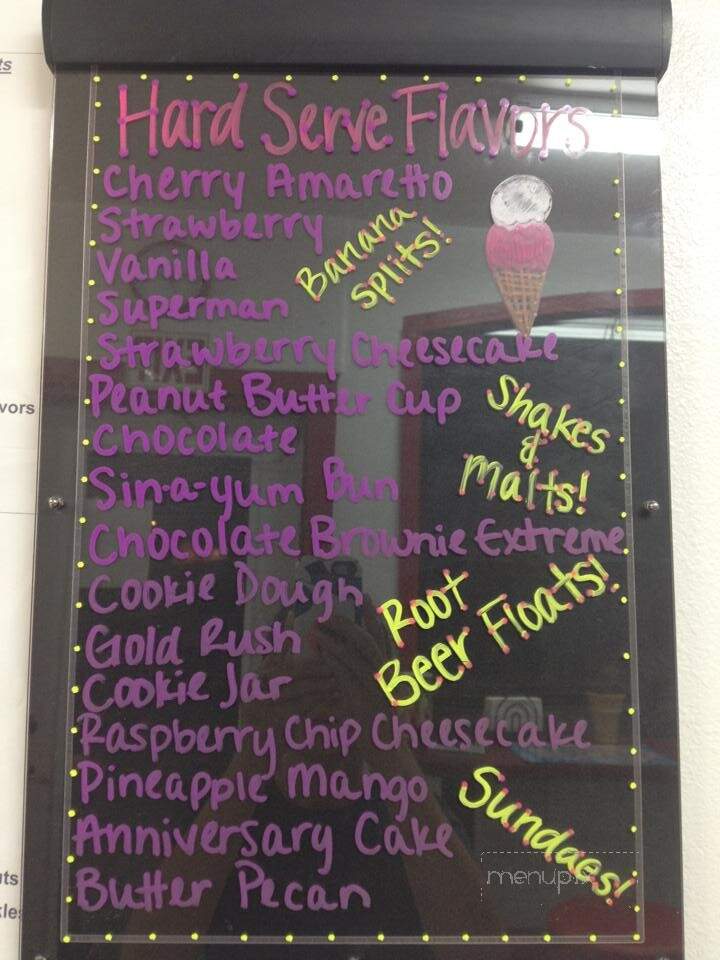 ts
Hard Serve Flavors
Cherry Amaretto
Strawberry
Vanilla
Superman
Banana
Splits!
Strawberry Cheesecake
Peanut Butter Cup
Chocolate
Shakes
&
Malts!
Sin-a-yum Bun
Chocolate Brownie Extreme
Cookie Dough
Gold Rush
Root
Beer Floats!
Cookie Jar
Raspberry Chip Cheesecake
Pineapple Mango
Anniversary Cake
Butter Pecan
Sundaes!
vors
uts
kle